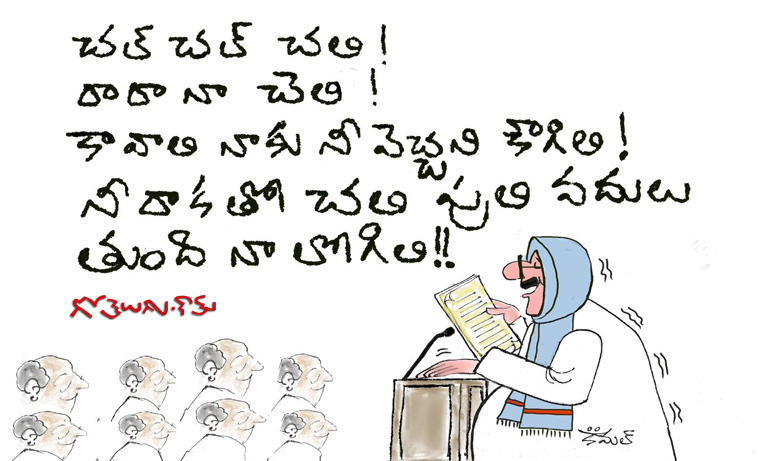 చల్ చల్ చలి!
రారా నా చెలి!
కావాలి నాకు నీ వెచ్చని కౌగిలి!
నీ రాకతో చలి పులి వదులు
తుంది నా లోగిలి!!
గోతెలుగు.కామ్